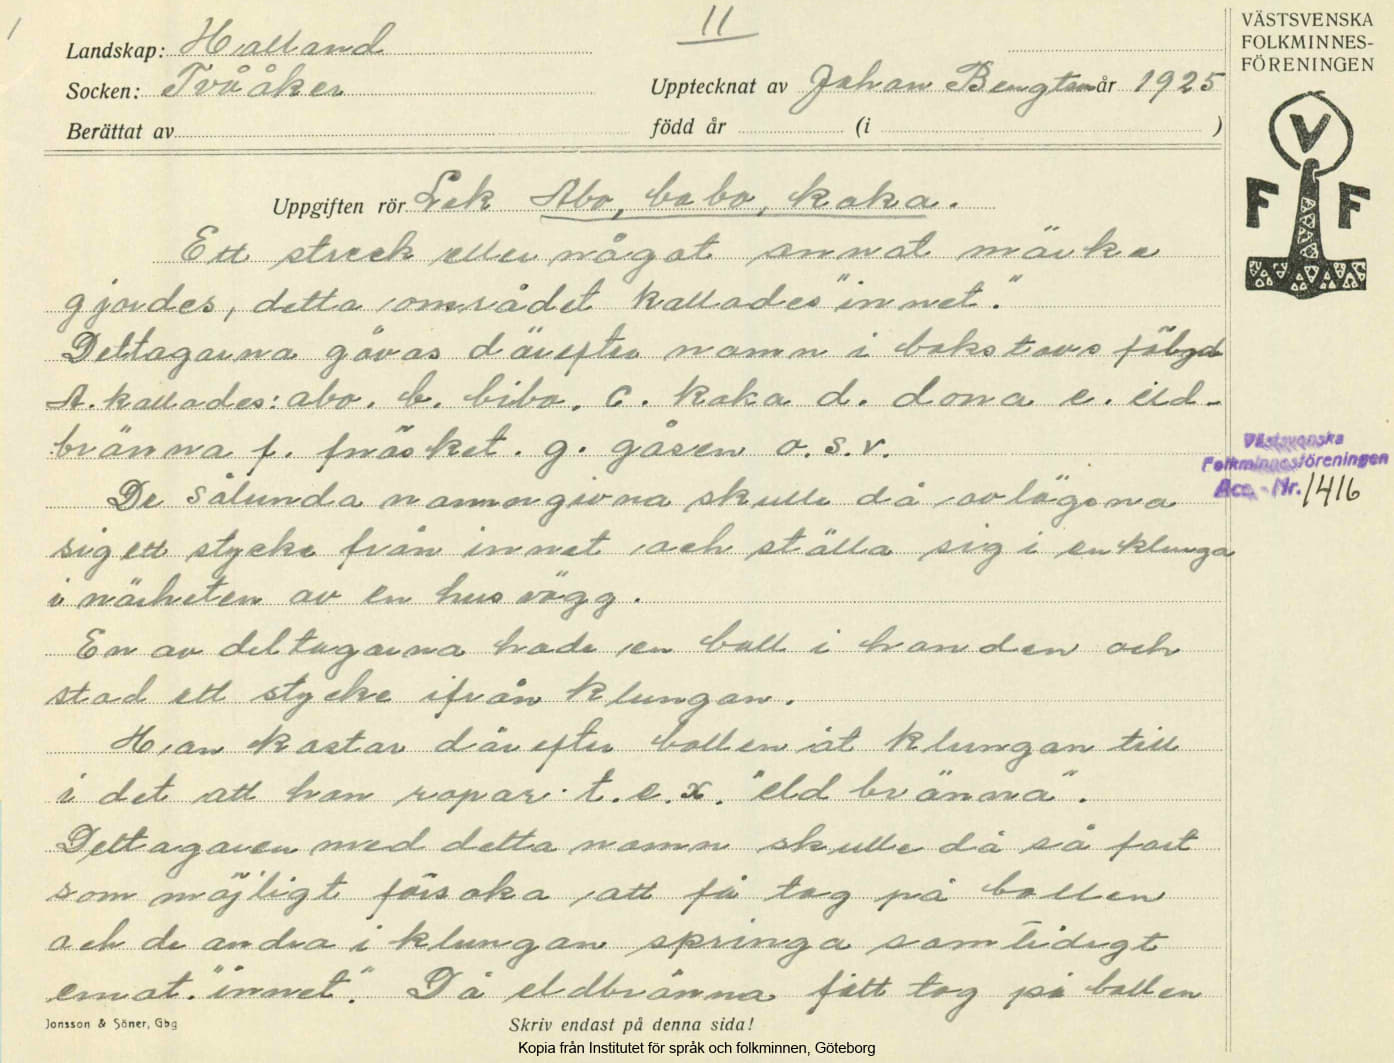 1
11
VÄSTSVENSKA
FOLKMINNES-
FÖRENINGEN
V
F F
Landskap: Halland
Socken: Tvååker
Upptecknat av Johan Bengtson år 1925
Berättat av
född år (i )
Uppgiften rör Lek Abo, bobo, kaka.
Ett streck eller något annat märke
gjordes, detta området kallades "innet".
Deltagarna gåvos därefter namn i bokstavs följd
A. kallades: abo. b. bibo. c. kaka d. dona e. eld-
bränna f. fnäsket. g. gåsen o.s.v.
De sålunda namngivna skulle då avlägsna
sig ett stycke från innet och ställa sig i en klunga
i närheten av en husvägg.
En av deltagarna hade en boll i handen och
stod ett stycke ifrån klungan.
Han kastar därefter bollen åt klungan till
i det att han ropar t.e.x. "eldbränna".
Deltagaren med detta namn skulle då så fort
som möjligt försöka att få tag på bollen
och de andra i klungan springa samtidigt
emot "innet". Då eldbränna fått tag på bollen
Västsvenska
Folkminnesföreningen
Acc.-Nr. 1416
Jonsson & Söner, Gbg
Skriv endast på denna sida!
Kopia från Institutet för språk och folkminnen, Göteborg